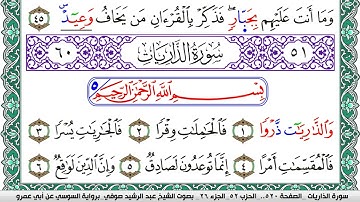 وَمَا أَنتَ عَلَيْهِم بِجَبَّارٍ ۖ فَذَكِّرْ بِالْقُرْءَانِ مَن يَخَافُ وَعِيدِ ٤٥
٥١ سُورَةُ الذَّارِيَاتِ ٦٠
بِسْمِ اللَّهِ الرَّحْمَٰنِ الرَّحِيمِ
وَالذَّارِيَٰت ذَّرْوًا ١ فَالْحَٰمِلَٰتِ وِقْرًا ٢ فَالْجَٰرِيَٰتِ يُسْرًا ٣
فَالْمُقَسِّمَٰتِ أَمْرًا ٤ إِنَّمَا تُوعَدُونَ لَصَادِقٌ ٥ وَإِنَّ الدِّينَ لَوَٰقِعٌ ٦
سورة الذاريات .. الصفحة ٥٢٠.. الحزب ٥٢ الجزء ٢٦ . بصوت الشيخ عبد الرشيد صوفي. برواية السوسي عن أبي عمرو